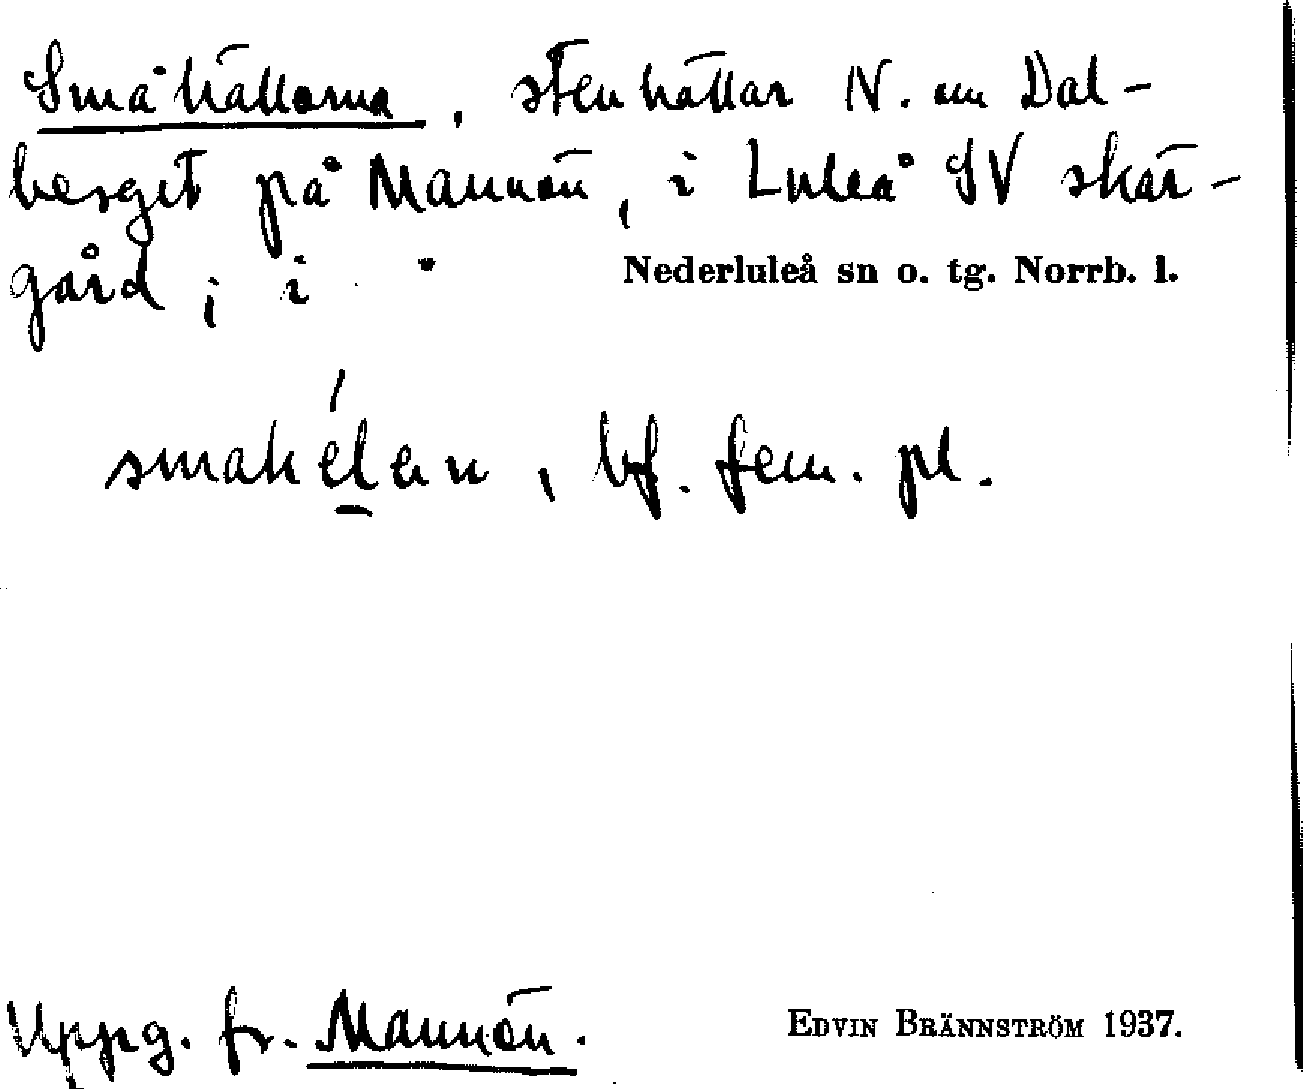 Småhällorna, stenhällar N. om Dal-
berget på Mannön, i Luleå SV skär-
gård ; i Nederluleå sn o. tg. Norrb. l.
bf. fem. pl.
Uppg. fr. Mannön. EDVIN BRÄNNSTRÖM 1937.